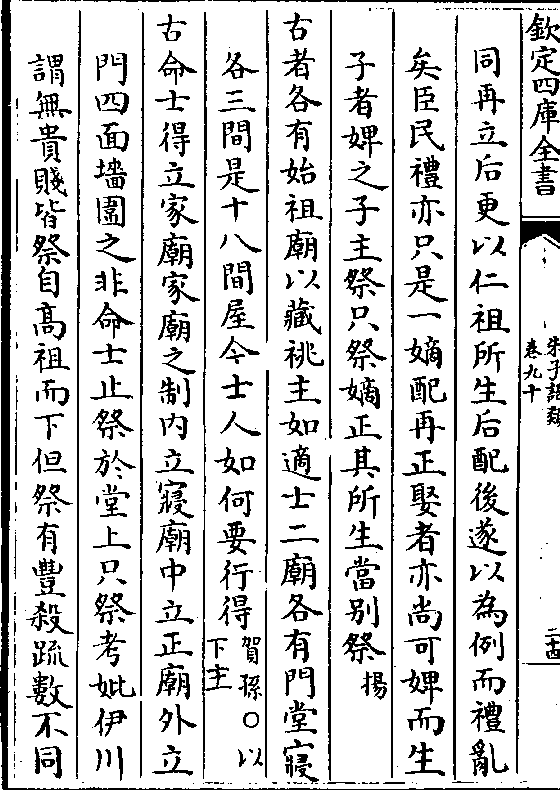 欽定四庫全書
朱子語類
卷九十
二十四
同再立后更以仁祖所生后配後遂以為例而禮亂
矣臣民禮亦只是一嫡配再正娶者亦尚可婢而生
子者婢之子主祭只祭嫡正其所生當别祭揚
古者各有始祖廟以藏祧主如適士二廟各有門堂寢
各三間是十八間屋今士人如何要行得賀孫○以下主
古命士得立家廟家廟之制内立寢廟中立正廟外立
門四面墻圍之非命士止祭於堂上只祭考妣伊川
謂無貴賤皆祭自髙祖而下但祭有豐殺疏數不同